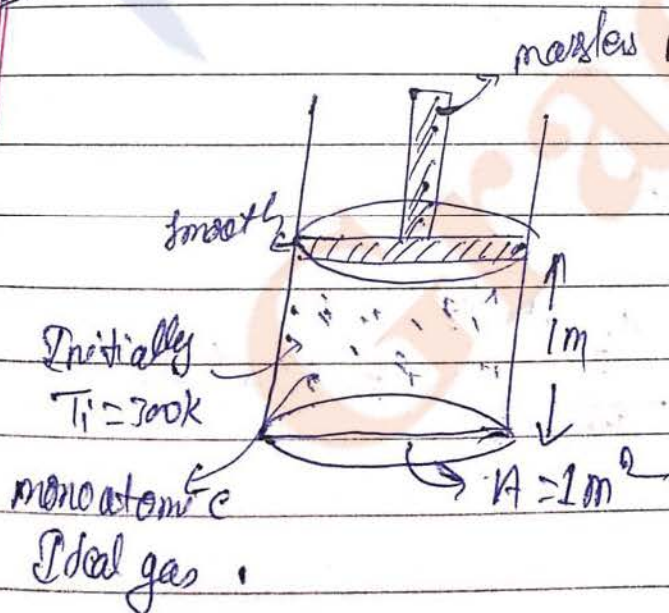 massless
smooth
1m
Initially
Ti = 300K
A = 1m²
monoatomic
Ideal gas .